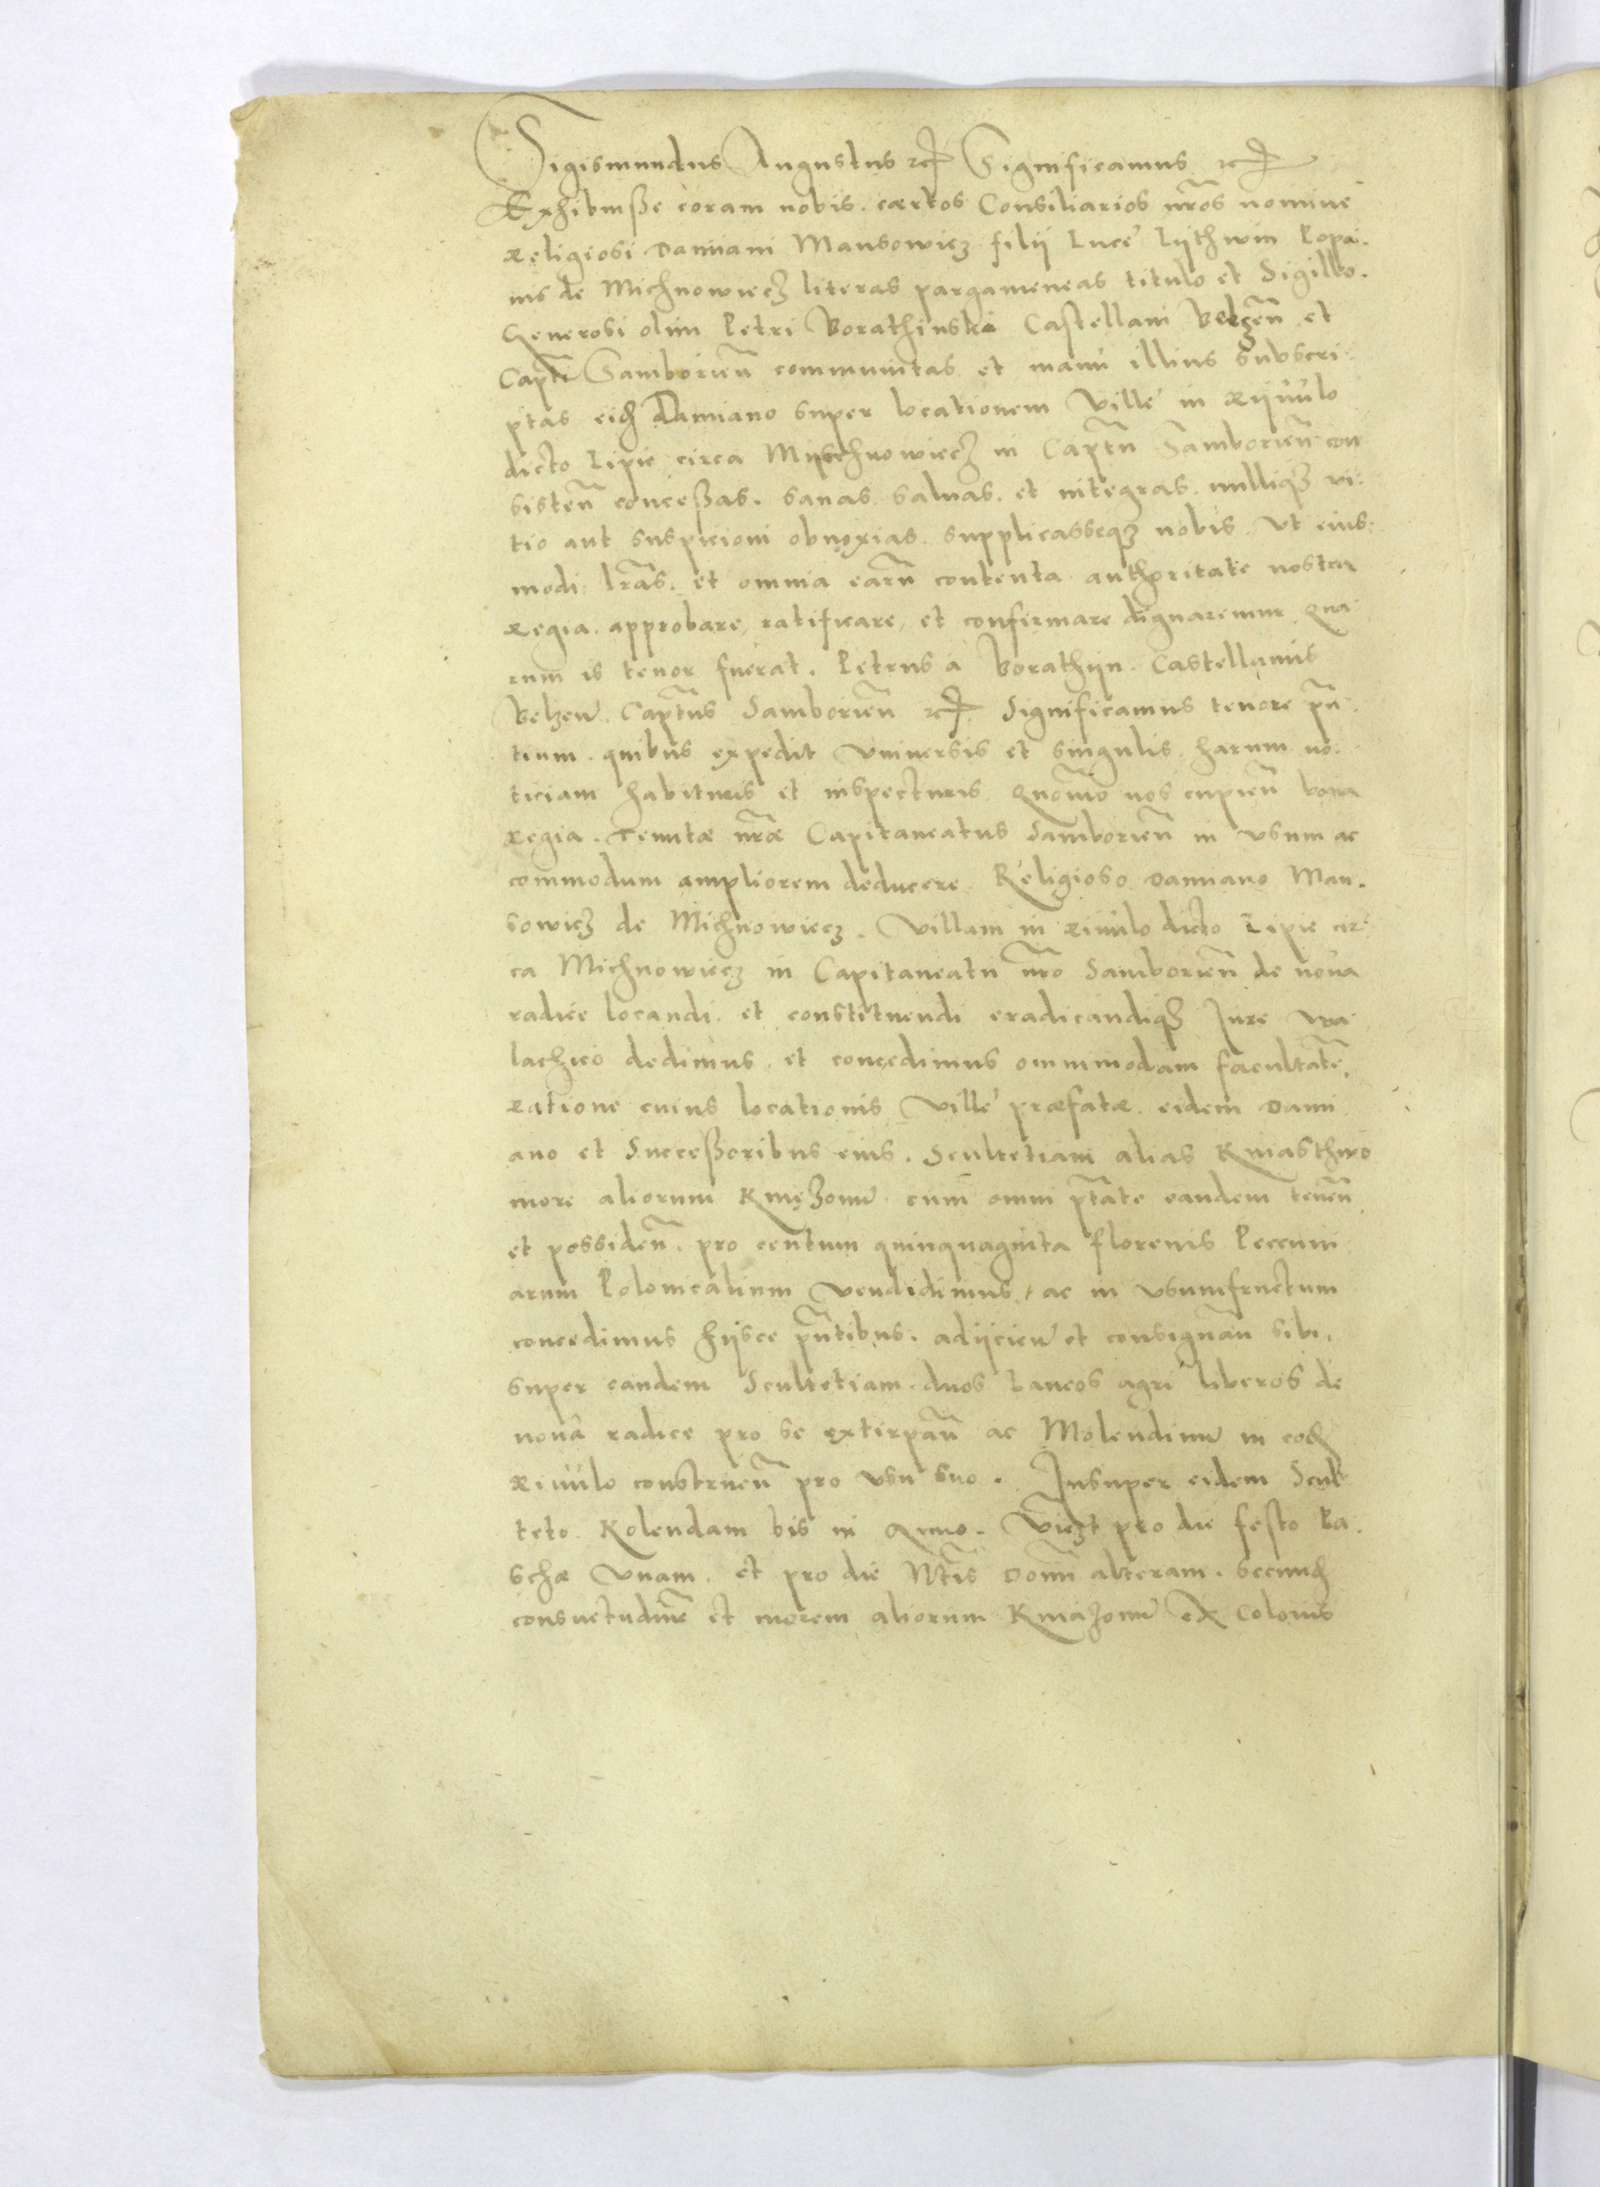 Sigismundus Augustus etc Significamus etc
Exhibuisse coram nobis certos Consiliarios nros nomine
Religiosi Damiani Mansowicz filii Luce Lythwin Popo
nis de Michnowiecz literas pargameneas titulo et Sigillo
Generosi olim Petri Borathinski Castellani Belzen et
Capti Samborien communitas et manu illius subscri
ptas eid Damiano super locationem Ville in Ryvulo
dicto Lipie circa Mychnowiecz in Captu Samborien con
sisten concessas. sanas salvas. et integras. nulliq vi
tio aut suspicioni obnoxias. supplicasseq nobis. Ut eius
modi lras. et omnia earu contenta authoritate nostra
Regia. approbare, ratificare, et confirmare dignaremur. Qua
rum is tenor fuerat. Petrus a Borathyn. Castellanus
Belzen. Captus Samborien etc Significamus tenore pn
tium. quibus expedit Universis et singulis harum no
ticiam habituris et inspecturis Quomo nos cupien bona
Regia. Tenutæ nræ Capitaneatus Samborien in usum ac
commodum ampliorem deducere. Religioso Damiano Man
sowicz de Michnowiecz. Villam in rivulo dicto Lipie cir
ca Michnowiecz in Capitaneatu nro Samborien de nova
radice locandi. et constituendi eradicandiq Jure Wa
lachico dedimus. et concedimus omnimodam facultate.
Ratione cuius locationis Ville præfatæ. eidem Dami
ano et Successoribus eius. Scultetiam alias Kniasthwo
more aliorum Knięzonu. cum omni ptate eandem tenen
et possiden. pro centum quinquaginta florenis Peccuni
arum Polonicalium vendidimus, ac in usumfructum
concedimus hijsce pntibus. adijcien et consignan sibi.
super eandem Scultetiam. duos Laneos agri liberos de
nova radice pro se extirpan ac Molendinu in eod
Rivulo construen pro usu suo. Insuper eidem Scul
teto Kolendam bis in Anno. Videlzt pro die festo Pa
schæ Unam. et pro die Ntis Domi alteram. secund
consuetudine et morem aliorum Kniazonu ex Colonis